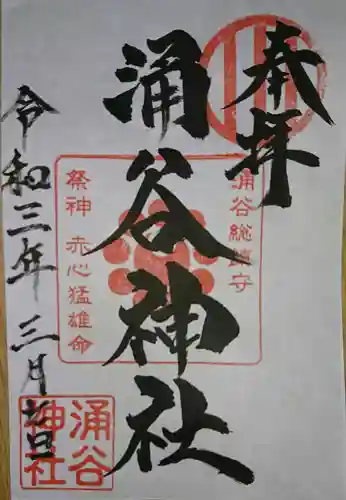 奉拝
涌谷総鎮守
涌谷神社
祭神 赤心猛雄命
令和三年三月
涌谷
神社